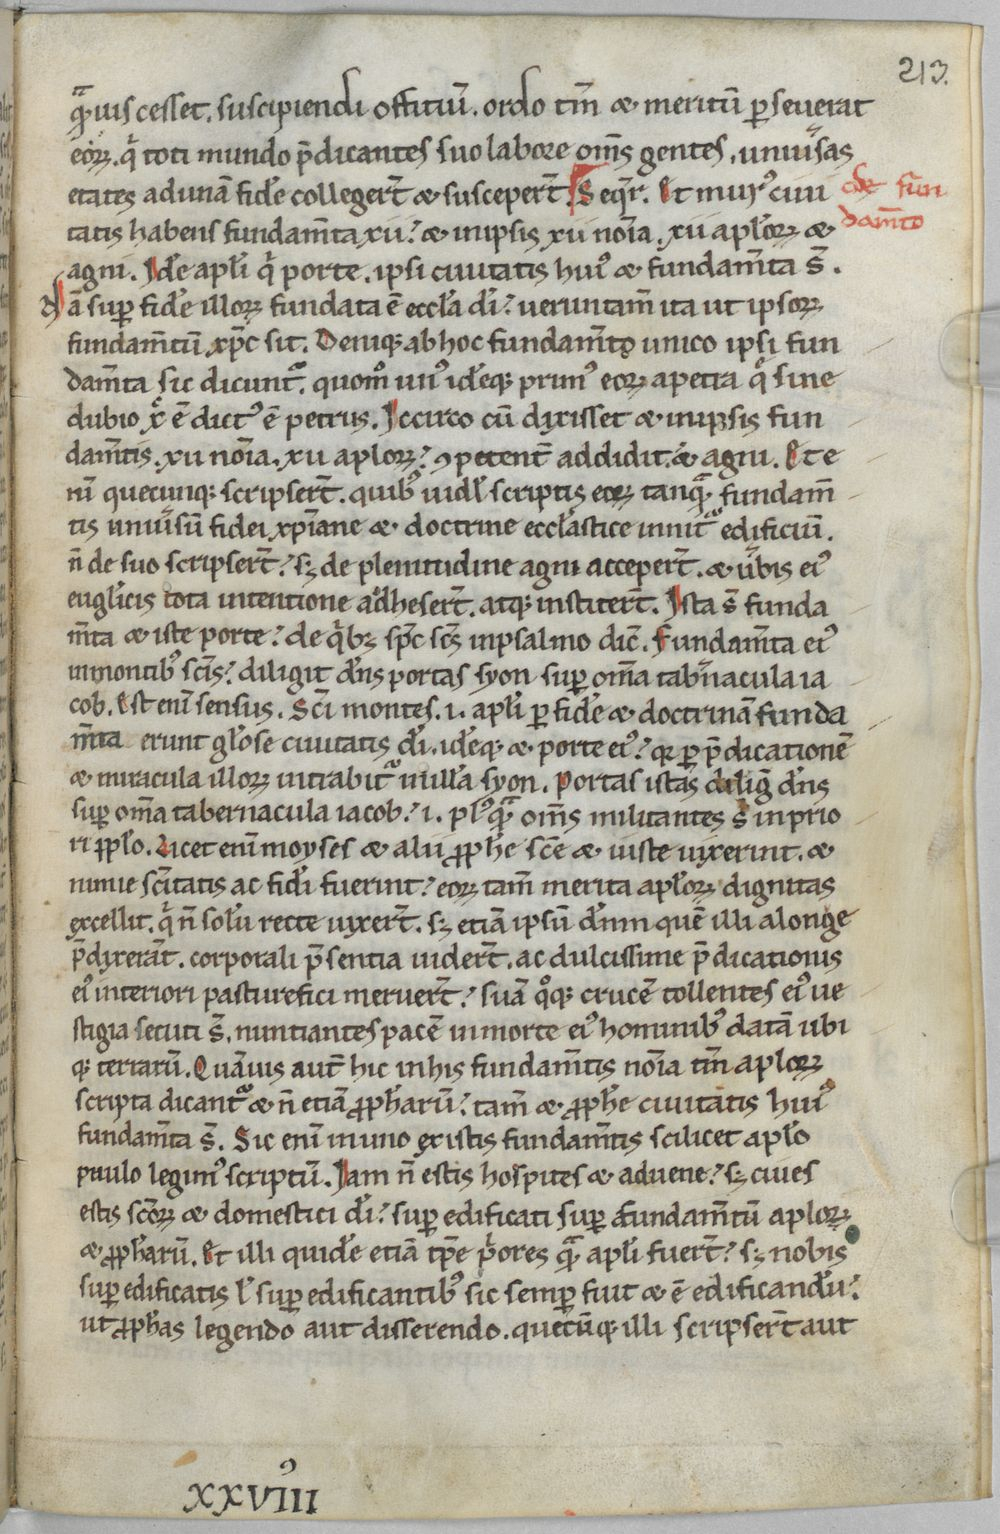 213.
q̄uis cesset. suscipiendi offitiū. ordo tm̄ & meritū p̱seuerat
eoꝝ. q̇ toti mundo p̄dicantes suo labore om̄s gentes, uniūsas
etates ad unā fidē colleger̄t & susceper̄t. Seqr̄. Et murꝰ ciui
de fun
tatis habens fundam̄ta xii? & in ipsis xii nōia, xii aplōꝝ &
dam̄to
agni. Idē apli q̇ porte. ipsi ciuitatis huiꝰ & fundam̄ta s̄.
Nā sup̱ fidē illoꝝ fundata ē eccl̄a dī? ueruntam̄ ita ut ipsoꝝ
fundam̄tū xp̄c sit. Deniqꝫ ab hoc fundam̄to unico ipsi fun
dam̄ta sic dicunt᷑. quom̊ unꝰ idēqꝫ primꝰ eoꝝ a petra q̇ sine
dubio x̄ ē dictꝰ ē petrus. Iccirco cū dixisset & in ipsis fun
dam̄tis. xii nōia. xii aploꝝ? ꝯpetent̄ addidit. & agni. Et e
nī quecunqꝫ scripser̄t. quibꝰ uidl̄ scriptis eoꝝ tanq̄. fundam̄
tis uniūsū fidei xp̄iane & doctrine eccl̄astice innit᷑ edificiū.
n̄ de suo scripser̄t? sꝫ de plenitudine agni acceper̄t. & ūbis eiꝰ
euglīcis tota intentione adheser̄t. atqꝫ institer̄t. Ista s̄ funda
m̄ta & iste porte? de q̇bꝫ sp̄c sc̄s in psalmo dic̄. Fundam̄ta eiꝰ
in montibꝰ sc̄is? diligit dn̄s portas syon sup̱ om̄a tabn̄acula ia
cob. Est enī sensus. Sc̄i montes .i. apli p̱ fidē & doctrinā funda
m̄ta erunt glōse ciuitatis dī. idēqꝫ & porte eiꝰ? qꝛ p̱ p̄dicationē
& miracula illoꝝ intrabit᷑ in illā syon. Portas istas diliḡ dn̄s
sup̱ om̄a tabernacula iacob? .i. plꝰq̄ om̄s militantes s̄ in prio
ri pplō. Licet enī moyses & alii ꝓphe sc̄e & iuste uixerint. &
nimie sc̄itatis ac fidī fuerint? eoꝝ tam̄ merita aplōꝝ dignitas
excellit. q̇ n̄ solū recte uixer̄t. sꝫ etiā ipsū dn̄m quē illi a longe
p̄dixerāt. corporali p̄sentia uider̄t. ac dulcissime p̄dicationis
eiꝰ interiori pasturefici meruer̄t? suā qͦqꝫ crucē tollentes eiꝰ ue
stigia secuti s̄. nuntiantes pacē in morte eiꝰ hominibꝰ datā ubi
qꝫ terrarū. Quāuis aut̄ hic in his fundam̄tis nōia tm̄ aplōꝝ
scripta dicant᷑ & n̄ etiā ꝓpharū? tam̄ & ꝓphe ciuitatis huiꝰ
fundam̄ta s̄. Sic enī in uno ex istis fundam̄tis scilicet aplo
paulo legimꝰ scriptū. Iam n̄ estis hospites & aduene? sꝫ ciues
estis sc̄oꝝ & domestici dī? sup̱ edificati sup̱ fundam̄tū aploꝝ
& ꝓpharū. Et illi quidē etiā tp̄e p̓ores q̄ apli fuer̄t? sꝫ nobis
sup̱ edificatis l̄ sup̱ edificantibꝰ sic semp̱ fuit & ē edificandū?
ut ꝓphas legendo aut disserendo. quecūqꝫ illi scripser̄t aut
XXVIIIꝰ